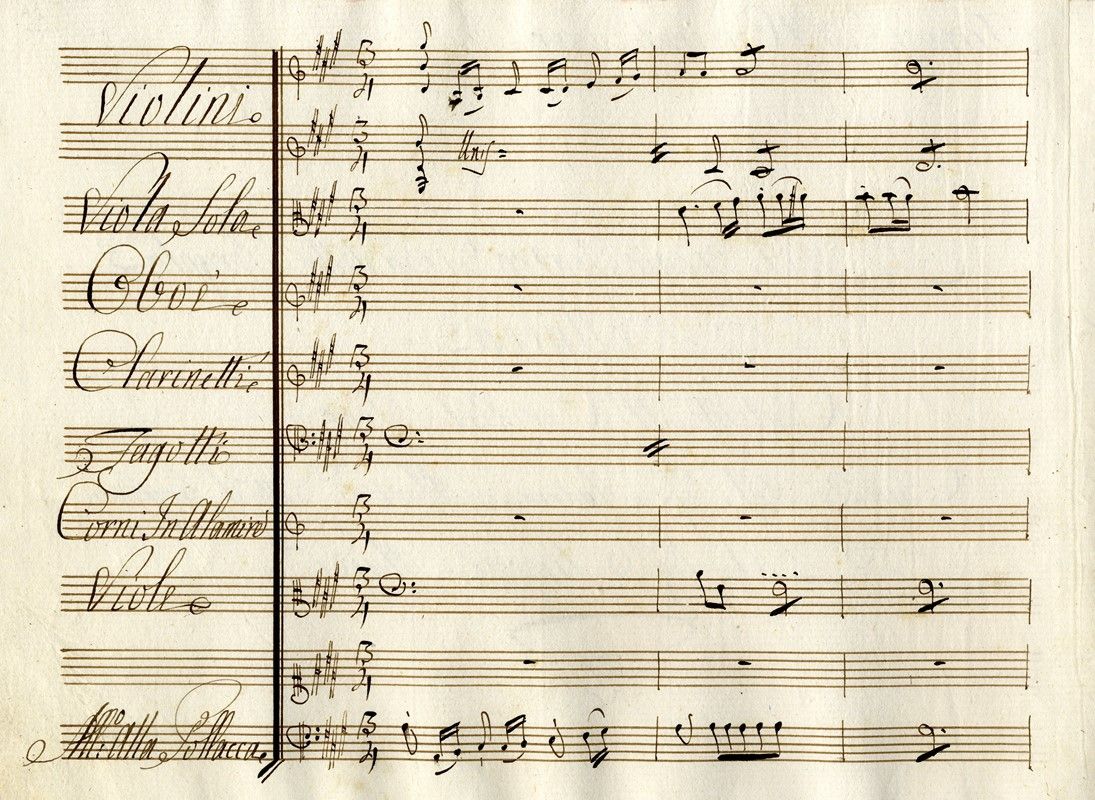 Violini
Unis=
Viola Sola
Oboè
Clarinetti
Fagotti
Corni In Alamirè
Viole
Mº: Alla Pollacca